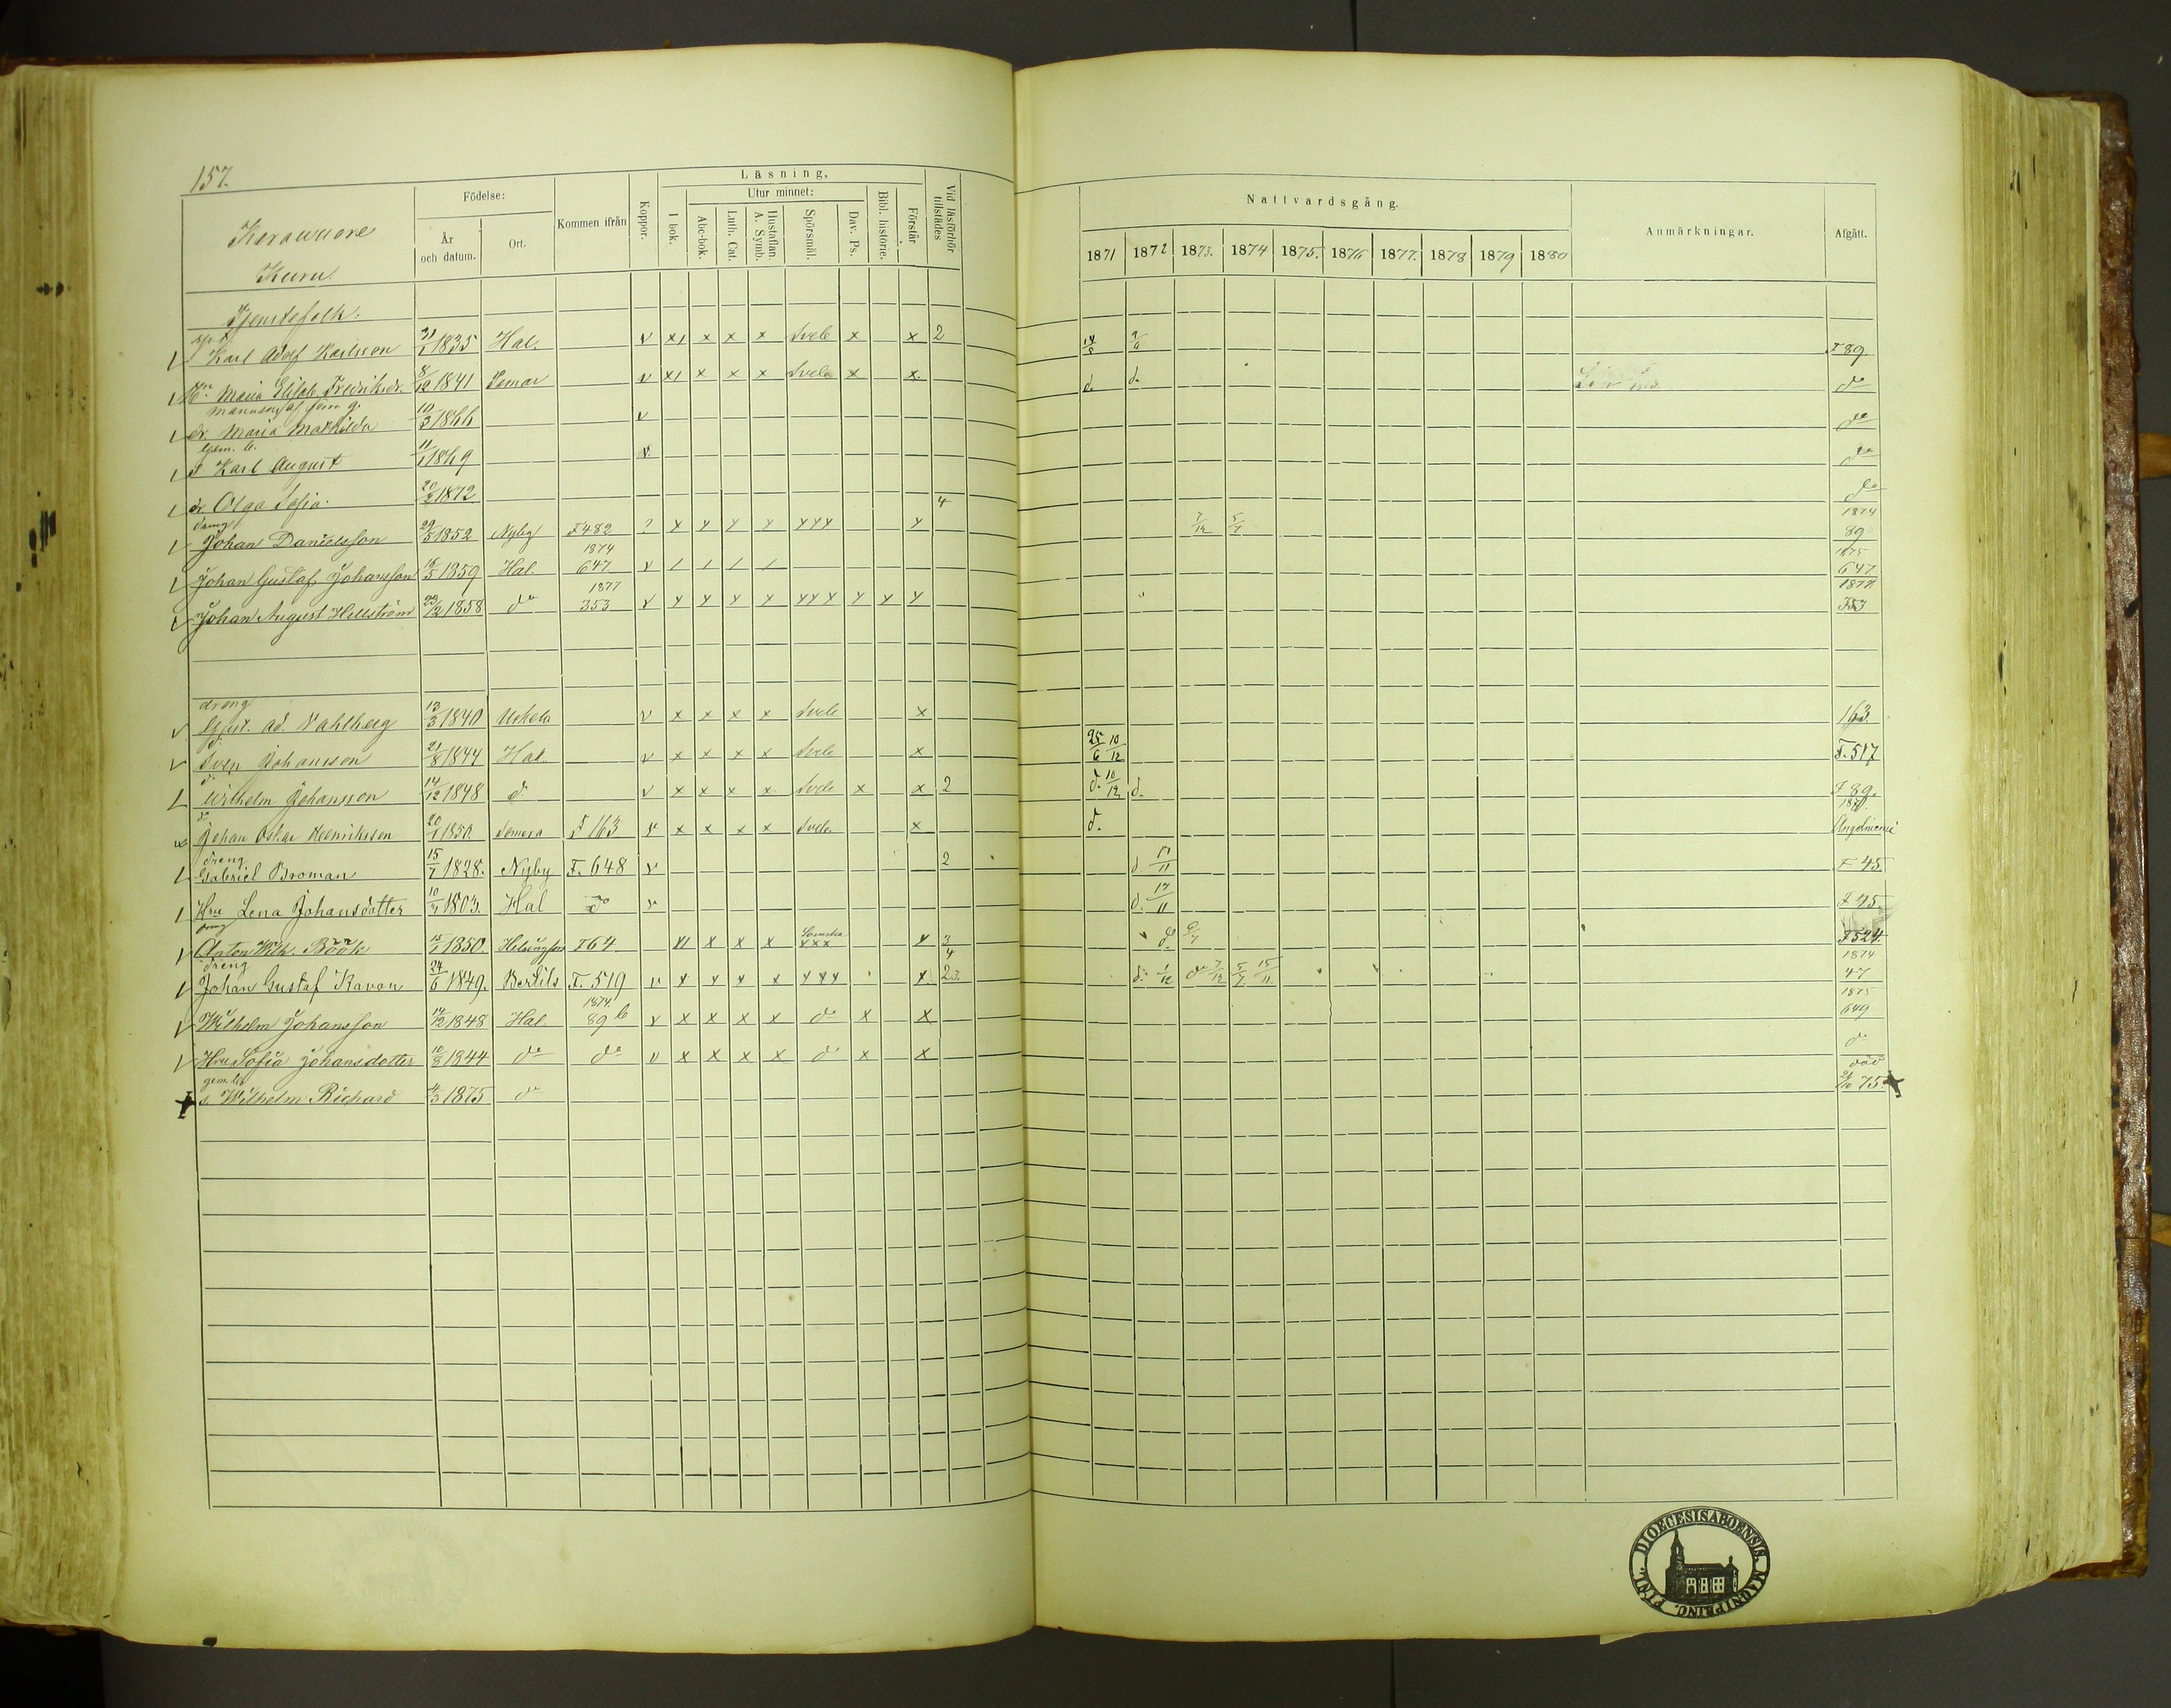 157.
Keravuore
Karu
Födelse:
År och datum.
Ort.
Kommen ifrån
Koppor.
Läsning,
I bok.
Utur minnet:
Abc-bok.
Luth. Cat.
Hustaflan. A. Symb.
Spörsmål.
Dav. Ps.
Bibl. historie.
Förstår
Vid läsförhör tillstädes
Nattvardsgång.
1871 1872 1873. 1874 1875. 1876 1877. 1878 1879 1880
Anmärkningar.
Afgått.
Tjenstefolk.
Karl Adolf Karlsson 31/1 1835 Hal. v x x x x Svebe x x 2 9/6 F 89.
Maria Elisab. Fredriksdr. 8/12 1841 v x x x x Svebe x x d. d. do
dr. Maria Mathilda 10/3 1866 v do
s Karl August 11/1 1869 v. do
dr Olga Sofia. 20/3 1872 4 do
dreng
Johan Danielsson 29/5 1852 Nyby F 482 ? x x x x xxx x 7/12 5/7 1874 89
Johan Gustaf Johansson 16/5 1859 Hal. 1874 647 v / / / / 1875 647
Johan August Hellström 23/12 1858 do 1877 353 v x x x x xxx x x x 1877 353
dreng
Gust. Ad. Wahlberg 13/3 1840 Uskela v x x x x Svebe x 163.
d.
Sven Johansson 21/8 1844 Hal. v x x x x Svebe x 25/6 10/12 F. 517
d.
Wilhelm Johansson 14/12 1848 d. v x x x x Svebe x x 2 d. 10/12 d. F 89.
do
Johan Oskar Henriksson 20/1 1850 Somero F 163 v x x x x Svebe x d. Angelniemi
dreng
Gabriel Broman 15/7 1828. Nyby F. 648 v 2 d. 17/11 F 45
Hru Lena Johansdotter 10/7 1803. Hal do v d. 17/11 F 45.
dreng
Anton Wilh. Böök 15/1 1850. Helsingfors F 64 x x x x Svenska xxx x 3/4 d. 6/7 F 524
dreng
Johan Gustaf Ravan 24/6 1849. Bertils F. 519 v x x x x xxx x 2 3. d. 1/12 do 7/12 5/7 15/11 1874 47
Wilhelm Johansson 14/12 1848 Hal 1874. 89 b v x x x x do x x 1875 649
Hru Sofia Johansdotter 10/8 1844 do do v x x x x do x x do
s. Wilhelm Richard 4/3 1875 do död 21/10 75.
DIOECESIS ABOENSIS. MAGNI PRINC. FINL.